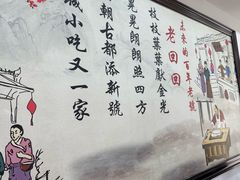 未来的百年老號
老回回
枝枝葉葉獻金光
晃晃朗朗照四方
朝古都添新號
城小吃又一家